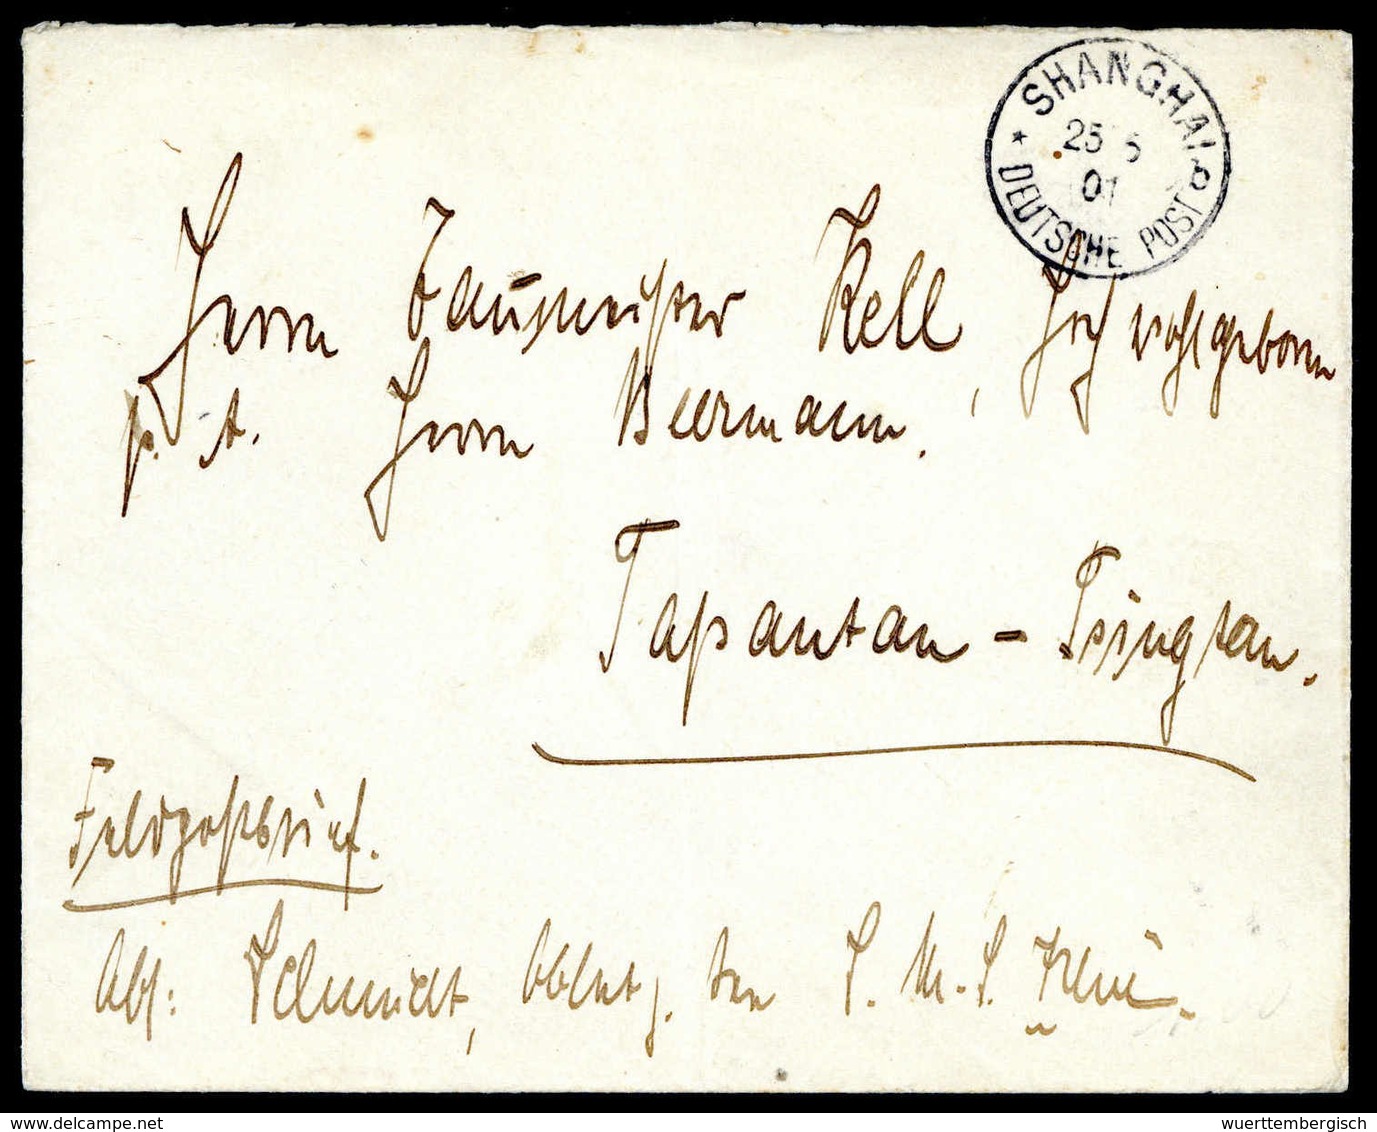 SHANGHAI
25 5
01
* DEUTSCHE POST
Herrn Baumeister Kell, Hochwohlgeboren
p. A. Herrn Beermann.
Tapautau - Tsingtau.
Feldpostbrief.
Abs: Schmidt, S. M. S.
wuerttembergisch